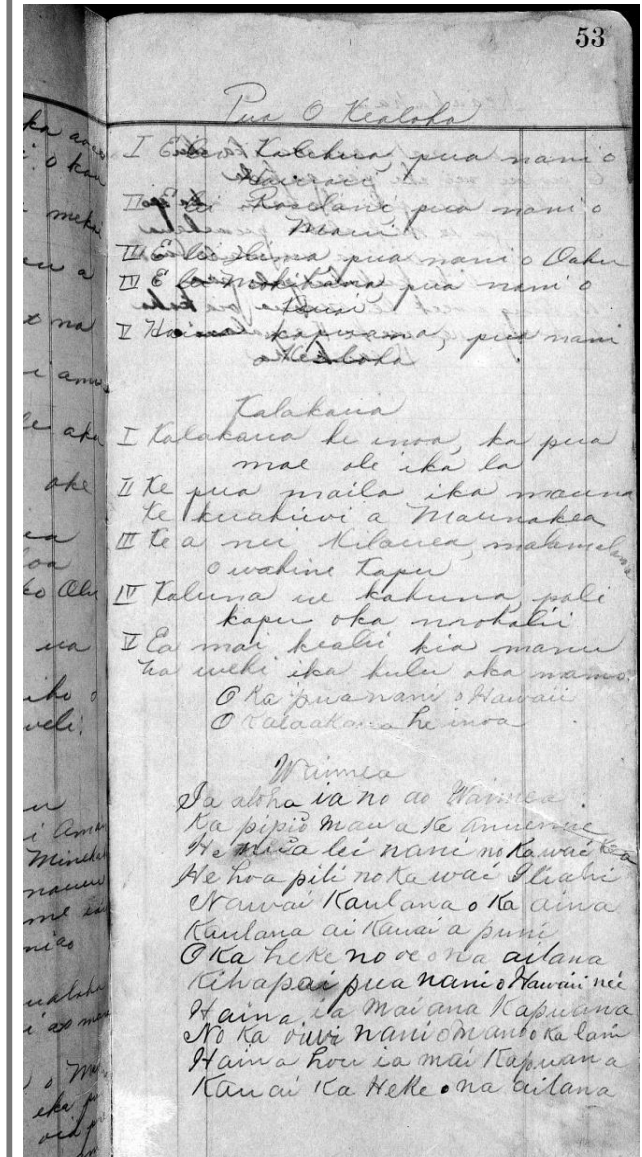 53
Pua O Kealoha
I E lei Kalehua, pua nani o
Hawaii
II E lei Roselani pua nani o
Maui
III E lei Ilima pua nani o Oahu
IV E lei Mokihana pua nani o
Kauai
V Haina kapuana, pua nani
o Kealoha
Kalakaua
I Kalakaua he inoa, ka pua
mae ole ika la
II Ke pua maila ika mauna
Ke kuahiwi a Maunakea
III Ke a nei Kilauea, malamalama
O wahine Kapu
IV Kaluna ue kahuna pali
kapu oka
V Ea mai kealii kia manu
ua wehi ika hulu oka mamo
O Ka pua nani o Hawaii
O Kalaakaua he inoa
Waimea
Ia aloha ia no ao Waimea
Ka pipio mau a Ke anuenue
He lei nani no Ka wai
He hoa pili no Ka wai Iliahi
Nawai Kaulana o Ka aina
Kaulana ai Kauai a puni
O Ka heke no oe o na ailana
Kihapai pua nani o Hawaii nei
Haina ia mai ana Kapuana
No Ka oiwi nani o mano ka lani
Haina hou ia mai Kapuana
Kauai Ka Heke o na ailana
ka
i o kau
meke
u a
t na
i amo
le aka
oke
ea
loa
ko Olu
ua
iho o
weli